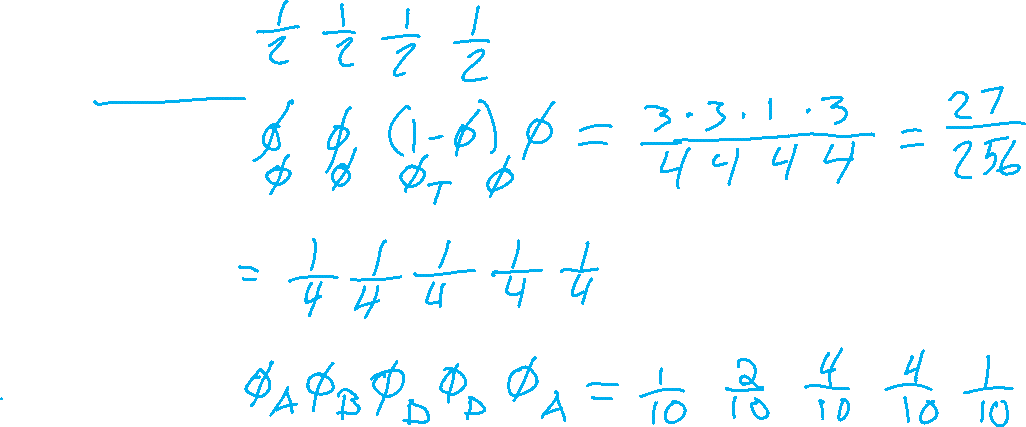 1/2 1/2 1/2 1/2
ϕ ϕ (1-ϕ) ϕ = 3·3·1·3/4 4 4 4 = 27/256
ϕ ϕ ϕ_T ϕ
= 1/4 1/4 1/4 1/4 1/4
ϕ_A ϕ_B ϕ_D ϕ_D ϕ_A = 1/10 2/10 4/10 4/10 1/10